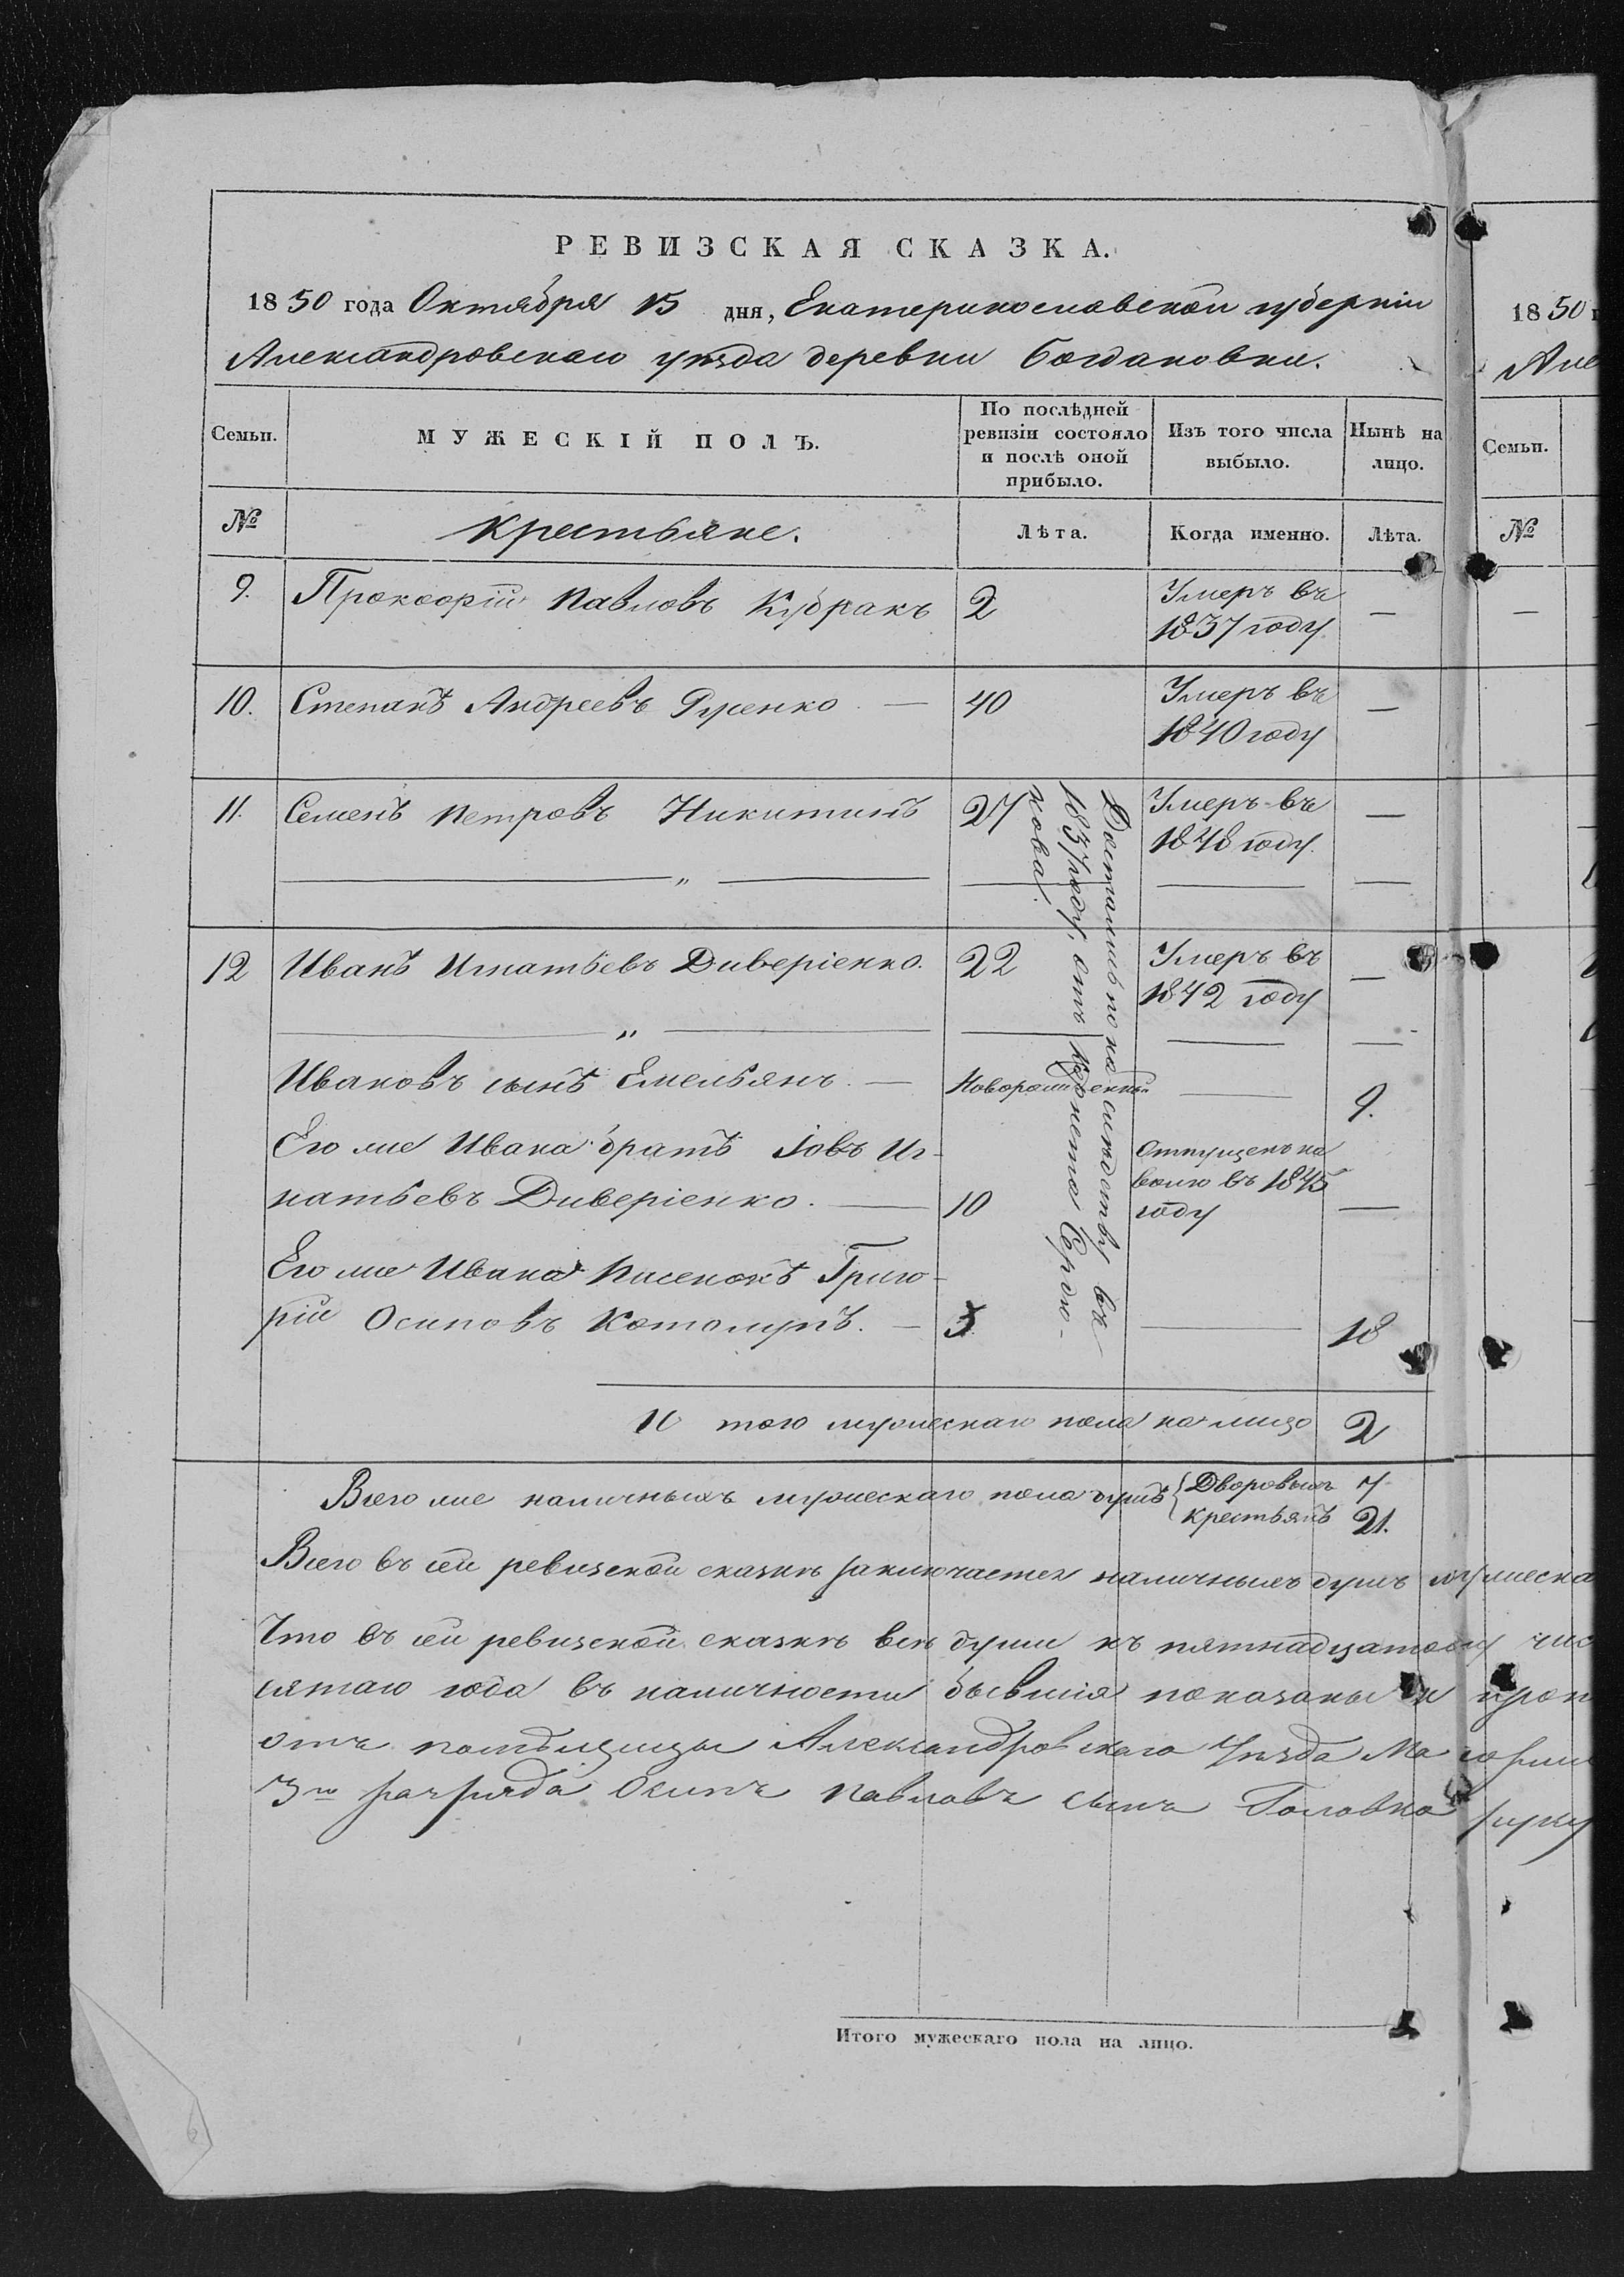 РЕВИЗСКАЯ СКАЗКА.
1850 года Октября 15 дня, Екатеринославской губерніи
Александровскаго уѣзда деревни Богдановки.
Семьи.
МУЖЕСКІЙ ПОЛЪ.
По послѣдней
ревизіи состояло
и послѣ оной
прибыло.
Изъ того числа
выбыло.
Нынѣ на
лицо.
№
Крестьяне.
Лѣта.
Когда именно.
Лѣта.
9. Прокофій Павловъ Кудракъ 2 Умеръ въ —
1837 году.
10. Степанъ Андреевъ Руенко — 40 Умеръ въ —
1840 году
11. Семенъ Петровъ Никитинъ 27 Умеръ въ —
1848 году.
— „ — — — —
12 Иванъ Игнатьевъ Диверіенко. 22 Умеръ въ —
1842 году
— „ — — — —
Ивановъ сынъ Емельянъ. — Новорожденный — 9.
Его же Ивана братъ Іовъ Иг-
натьевъ Диверіенко. — 10 Отпущенъ на
волю въ 1845
году —
Его же Ивана Григо-
рій Осиповъ Котолупъ. — 3 — 18
Достались по наслѣдству въ
1837 году, отъ Корнета
кова.
И того мужескаго пола на лицо 2
Всего же наличныхъ мужескаго пола душъ { Дворовыхъ 7
Крестьянъ 21.
Всего въ сей ревизской сказкѣ заключается наличныхъ душъ мужеска
Что въ сей ревизской сказкѣ всѣ души къ пятнадцатому чис
сятаго года въ наличности бывшія показаны и проп
отъ помѣщицы Александровскаго Уѣзда
3го разряда Осипъ Павловъ сынъ Головко руку
Итого мужескаго пола на лицо.
1850 г
Але
Семьи.
№
—